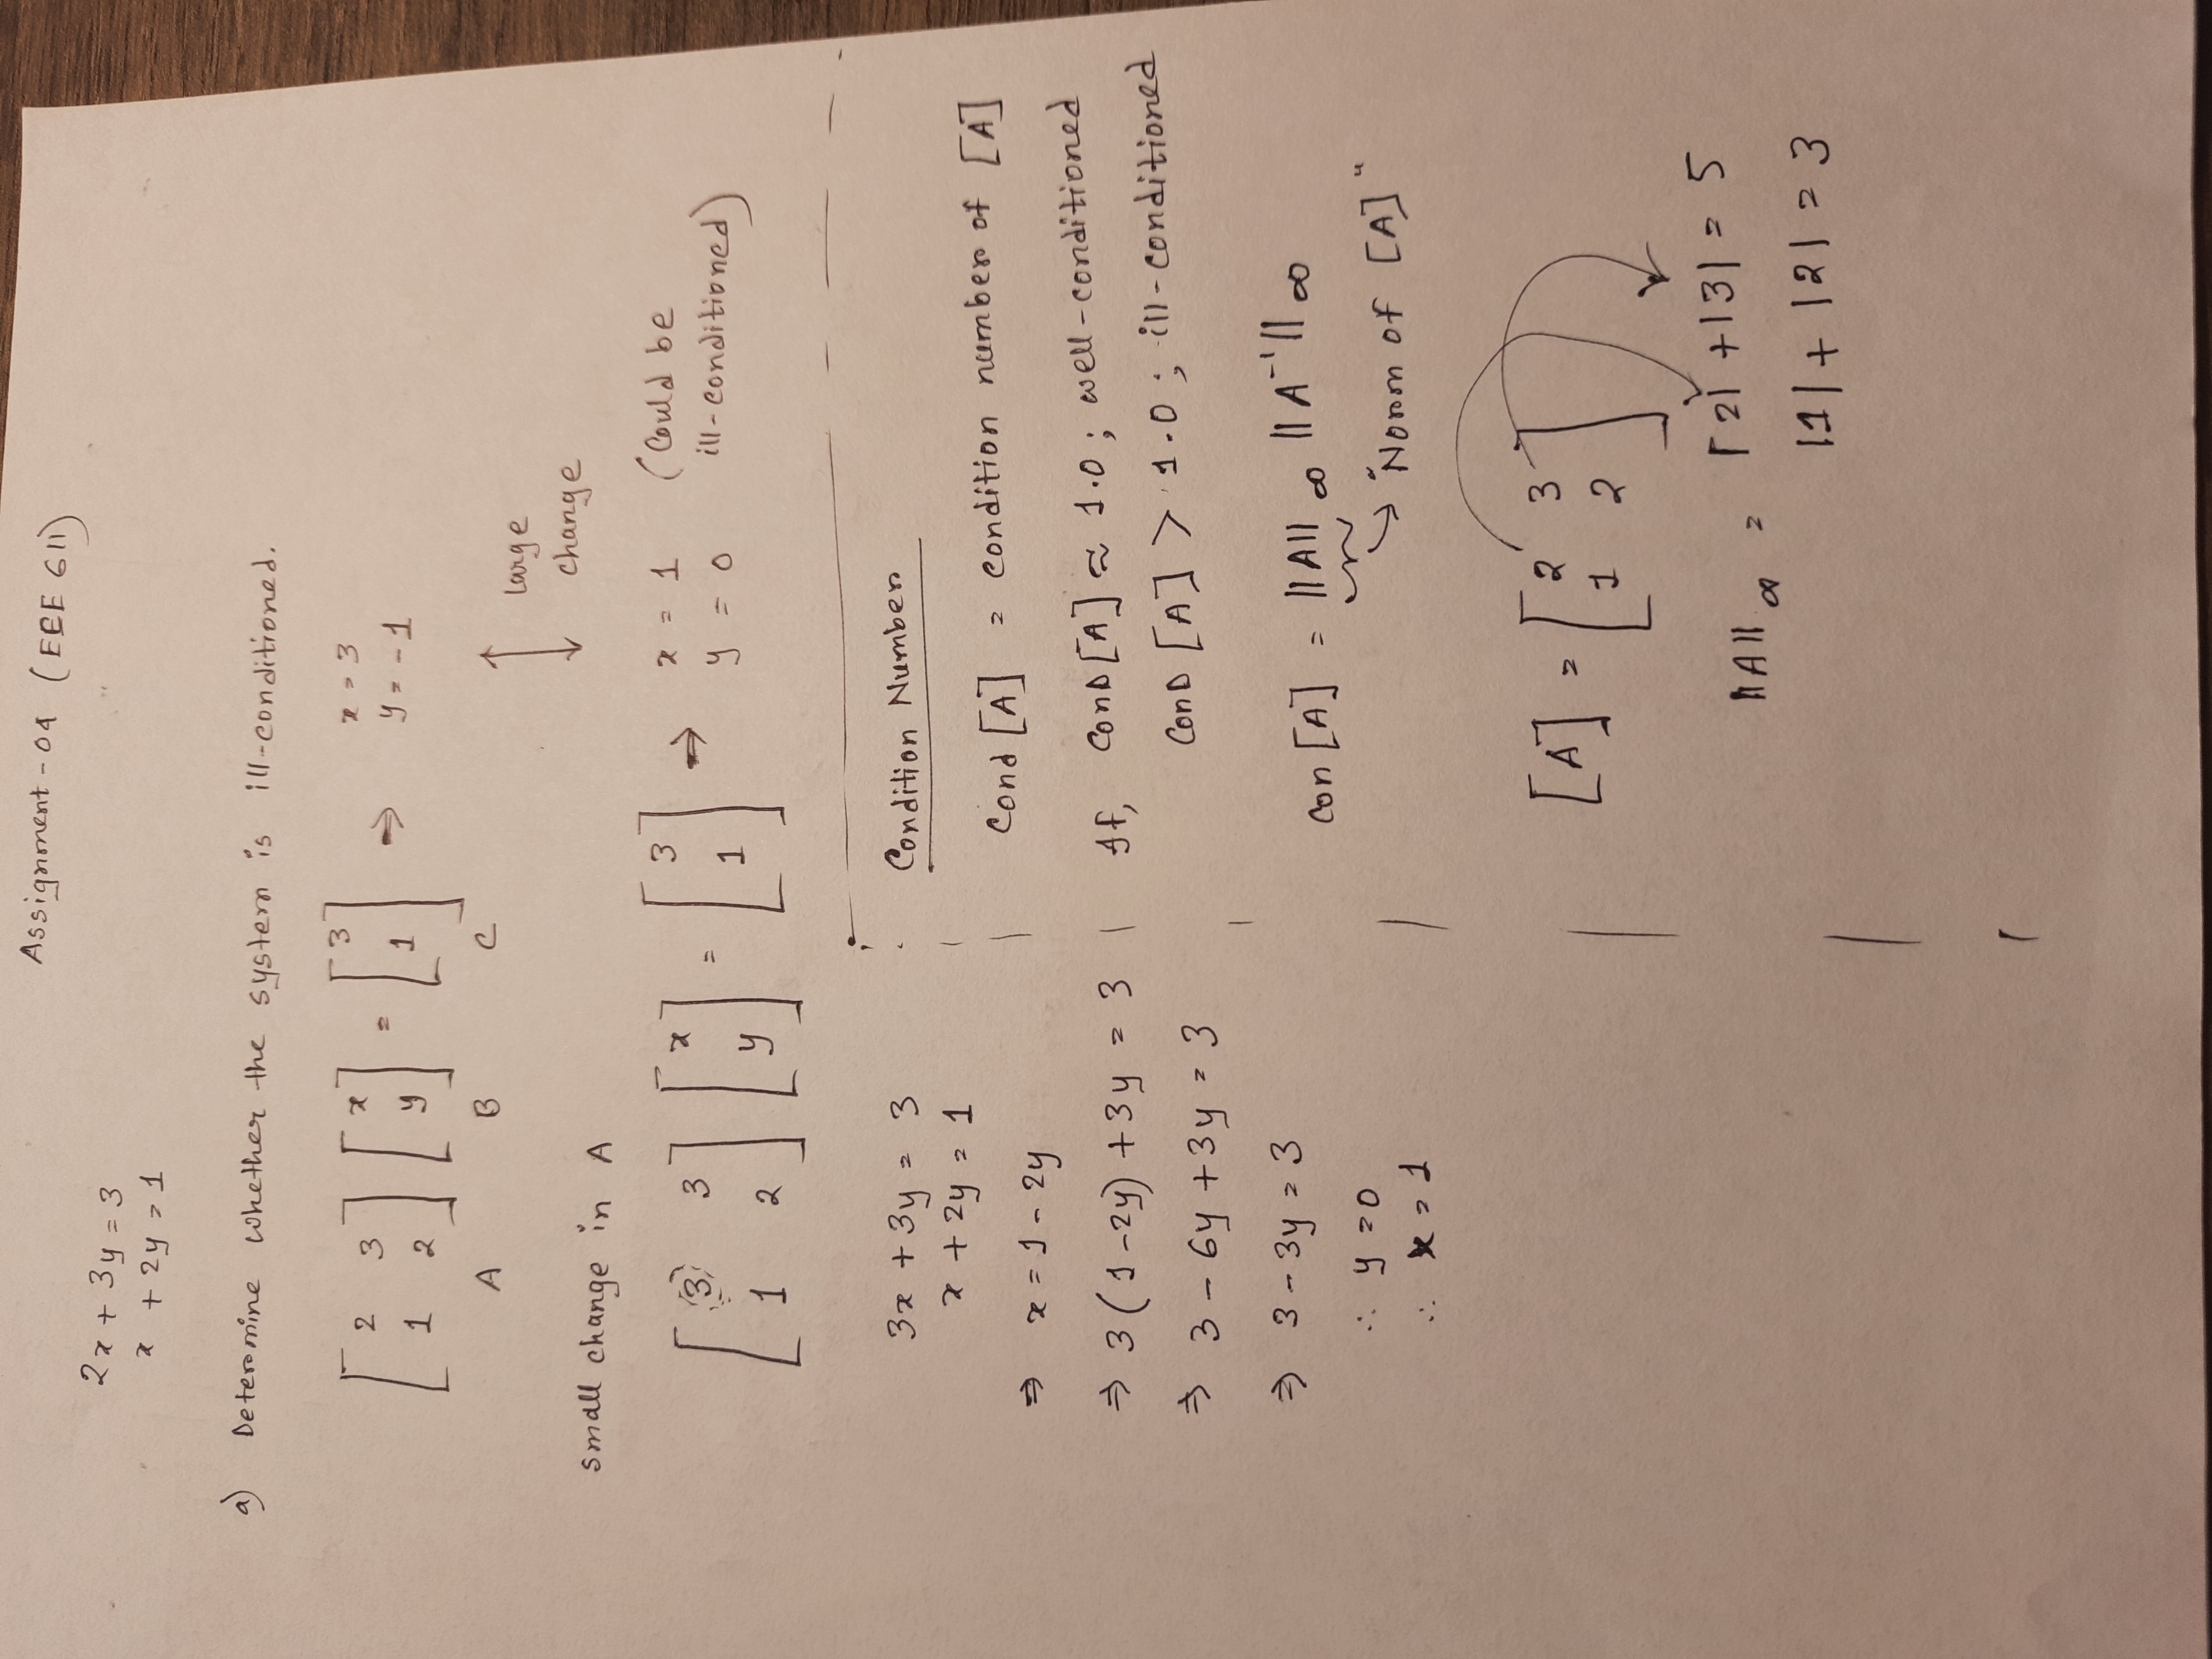 Assignment - 04 (EEE 611)
2x + 3y = 3
x + 2y = 1
a) Determine whether the system is ill-conditioned.
[2 3; 1 2] [x; y] = [3; 1] ⇒ x = 3
y = -1
A B C
↕ large
change
small change in A
[3 3; 1 2] [x; y] = [3; 1] ⇒ x = 1 (Could be
y = 0 ill-conditioned)
3x + 3y = 3
x + 2y = 1
⇒ x = 1 - 2y
⇒ 3(1-2y) + 3y = 3
⇒ 3 - 6y + 3y = 3
⇒ 3 - 3y = 3
∴ y = 0
∴ x = 1
Condition Number
Cond [A] = condition number of [A]
If, ConD [A] ≈ 1.0 ; well-conditioned
ConD [A] > 1.0 ; ill-conditioned
Con [A] = ||A||∞ ||A⁻¹||∞
→ "Norm of [A]"
[A] = [2 3; 1 2]
||A||∞ = |2| + |3| = 5
|1| + |2| = 3